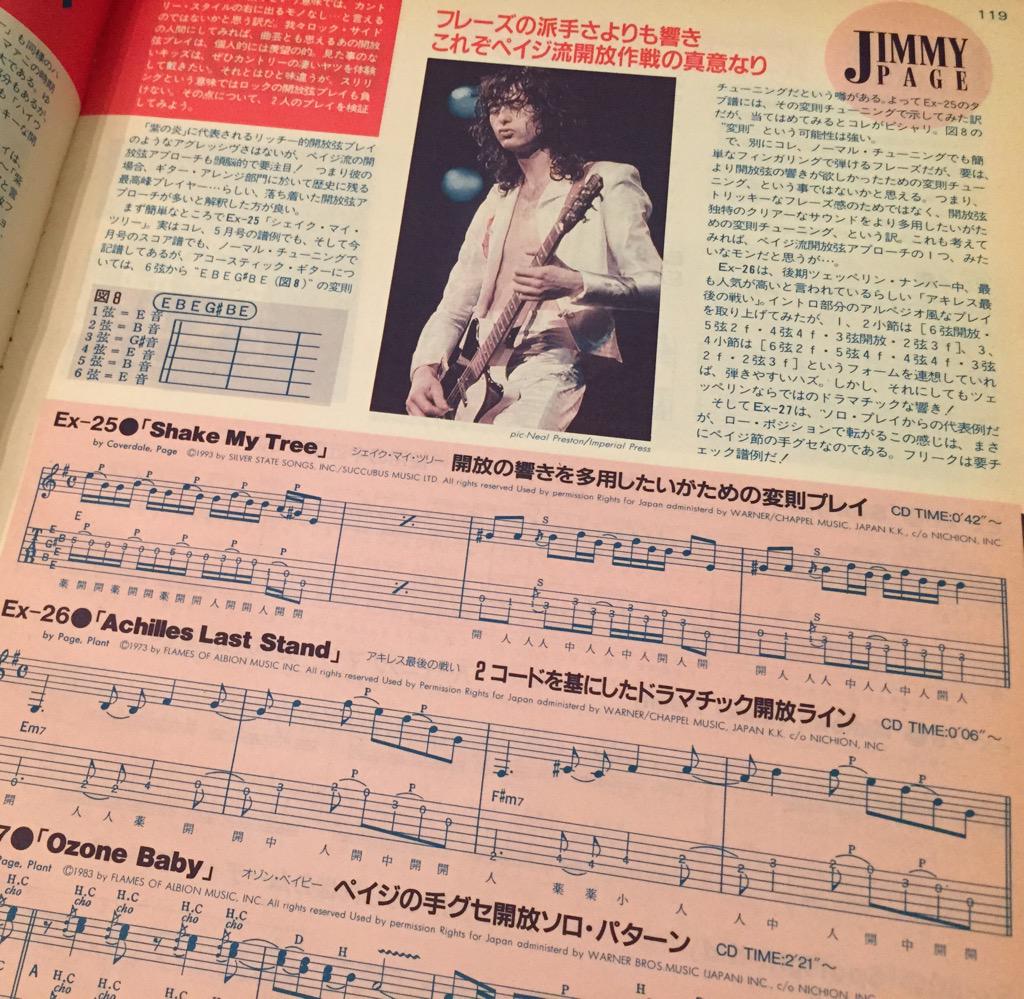 119
JIMMY
PAGE
リー・スタイルの右に出るモノなし…と言える
のではないかと思う訳だ。我々ロック・サイド
の人間にしてみれば、曲芸とも思えるあの開放
弦プレイは、個人的には羨望の的。見た事のな
いキッズは、ぜひカントリーの凄いヤツを体験
して戴きたい。それとはひと味違うが、スリリ
ングという意味ではロックの開放弦プレイも負
けない。その点について、2人のプレイを検証
してみよう。
フレーズの派手さよりも響き
これぞペイジ流開放作戦の真意なり
「紫の炎」に代表されるリッチー的開放弦プレイ
のようなアグレッシヴさはないが、ペイジ流の開
放弦アプローチも頭脳的で要注目！ つまり彼の
場合、ギター・アレンジ部門に於いて歴史に残る
最高峰プレイヤー…らしい、落ち着いた開放弦ア
プローチが多いと解釈した方が良い。
まず簡単なところでEx-25「シェイク・マイ・
ツリー」。実はコレ、5月号の譜例でも、そして今
月号のスコア譜でも、ノーマル・チューニングで
記譜してあるが、アコースティック・ギターにつ
いては、6弦から"E B E G♯B E (図8)"の変則
図8
E B E G♯B E
1弦=E音
2弦=B音
3弦=G♯音
4弦=E音
5弦=B音
6弦=E音
pic-Neal Preston/Imperial Press
チューニングだという噂がある。よってEx-25のタ
ブ譜には、その変則チューニングで示してみた訳
だが、当てはめてみるとコレがピシャリ。図8の
"変則"という可能性は強い。
で、別にコレ、ノーマル・チューニングでも簡
単なフィンガリングで弾けるフレーズだが、要は、
より開放弦の響きが欲しかったための変則チュー
ニング、という事ではないかと思える。つまり、
トリッキーなフレーズ感のためではなく、開放弦
独特のクリアーなサウンドをより多用したいがた
めの変則チューニング、という訳。これも考えて
みれば、ペイジ流開放弦アプローチの1つ、みた
いなモンだと思うが…。
Ex-26は、後期ツェッペリン・ナンバー中、最
も人気が高いと言われているらしい「アキレス最
後の戦い」。イントロ部分のアルペジオ風なプレイ
を取り上げてみたが、1、2小節は［6弦開放・
5弦2f・4弦4f・3弦開放・2弦3f］、3、
4小節は［6弦2f・5弦4f・4弦4f・3弦
2f・2弦3f］というフォームを連想していれ
ば、弾きやすいハズ。しかし、それにしてもツェ
ッペリンならではのドラマチックな響き！
そしてEx-27は、ソロ・プレイからの代表例だ
が、ロー・ポジションで転がるこの感じは、まさ
にペイジ節の手グセなのである。フリークは要チ
ェック譜例だ！
Ex-25●「Shake My Tree」 シェイク・マイ・ツリー 開放の響きを多用したいがための変則プレイ CD TIME:0'42"〜
by Coverdale, Page ©1993 by SILVER STATE SONGS, INC./SUCCUBUS MUSIC LTD. All rights reserved Used by permission Rights for Japan administerd by WARNER/CHAPPEL MUSIC, JAPAN K.K., c/o NICHION, INC.
E
薬 開 開 薬 開 開 薬 開 開 人 開 開 人 開 開
開 人 人 人 中 人 人 中 人 開 人 開
開 人 人 中 人 人 中 人 開 人
Ex-26●「Achilles Last Stand」 アキレス最後の戦い 2コードを基にしたドラマチック開放ライン CD TIME:0'06"〜
by Page, Plant ©1973 by FLAMES OF ALBION MUSIC INC. All rights reserved Used by Permission Rights for Japan administerd by WARNER/CHAPPEL MUSIC, JAPAN K.K. c/o NICHION, INC
Em7
F♯m7
開 人 人 薬 開 開 中 人 開 中 開 開 人 薬 薬 小 人 人 中 人 開 中 開 開
7●「Ozone Baby」 オゾン・ベイビー ペイジの手グセ開放ソロ・パターン CD TIME:2'21"〜
Page, Plant ©1983 by FLAMES OF ALBION MUSIC, INC. All rights reserved Used by permission Rights for Japan administerd by WARNER BROS.MUSIC (JAPAN) INC., c/o NICHION, INC
H.C H.C H.C H.C
cho cho cho cho
D H
A H.C H.C H.C
cho cho
H